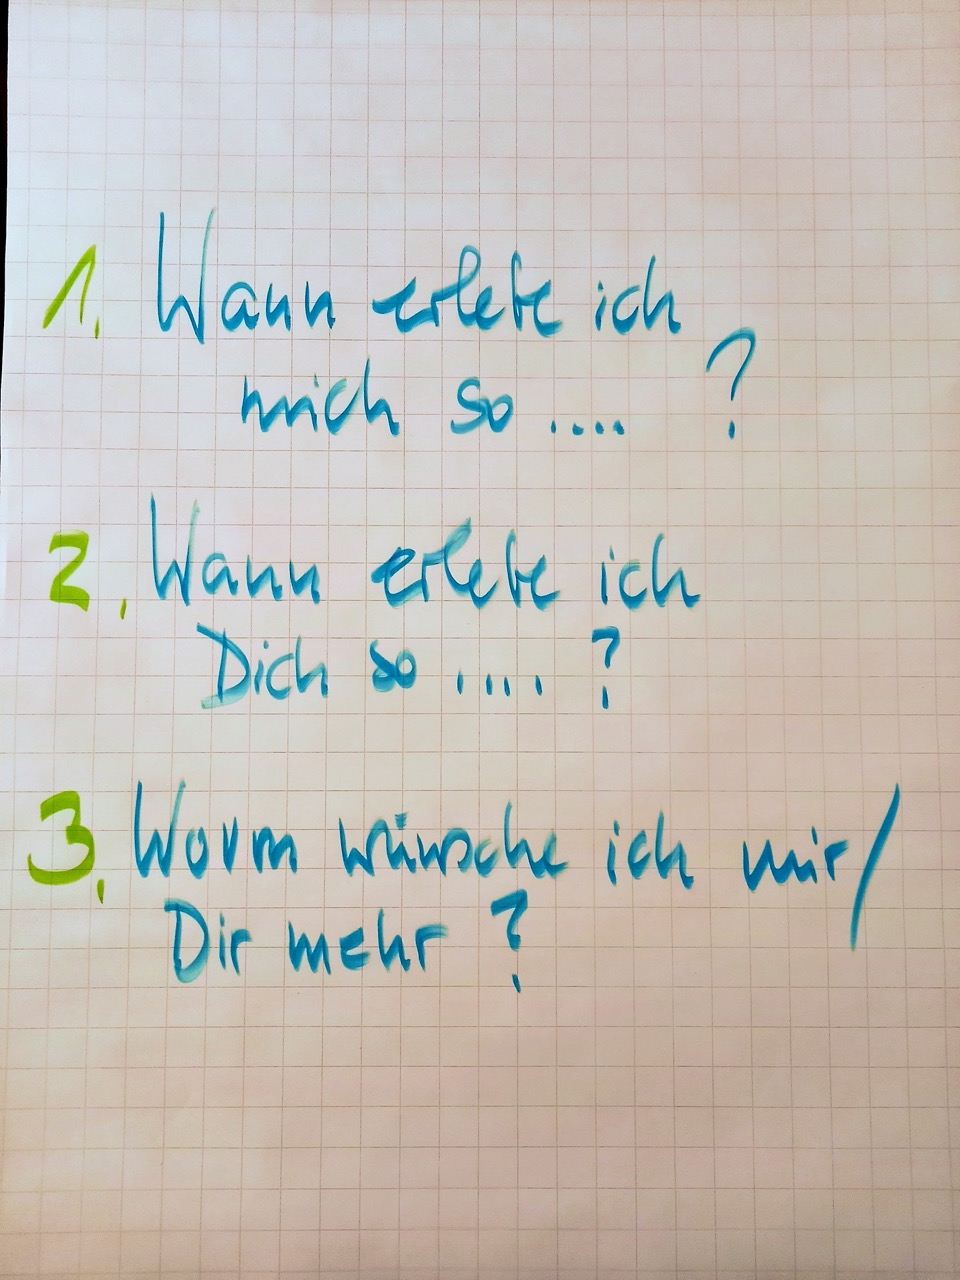 1. Wann erlebe ich
mich so .... ?
2. Wann erlebe ich
Dich so .... ?
3. Worin wünsche ich mir/
Dir mehr ?